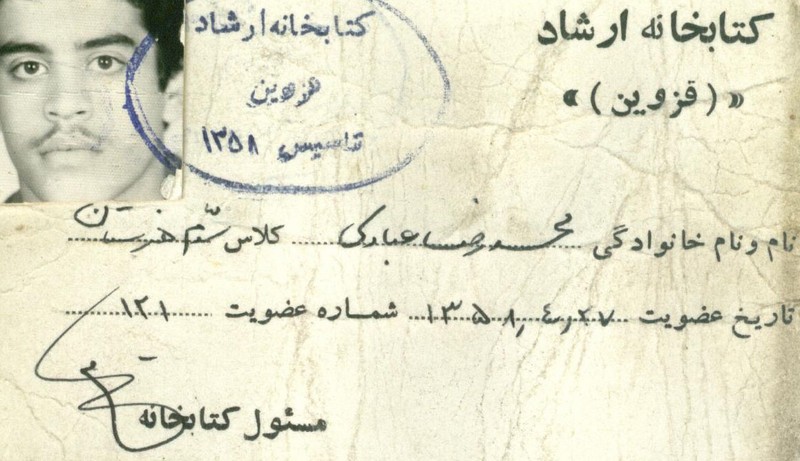 کتابخانه ارشاد
« ( قزوین ) »
کتابخانه ارشاد
قزوین
تاسیس ۱۳۵۸
نام و نام خانوادگی محمدرضا عبادی کلاس
تاریخ عضویت ۱۳۵۸,۴,۲۷ شماره عضویت ۱۲۱
مسئول کتابخانه